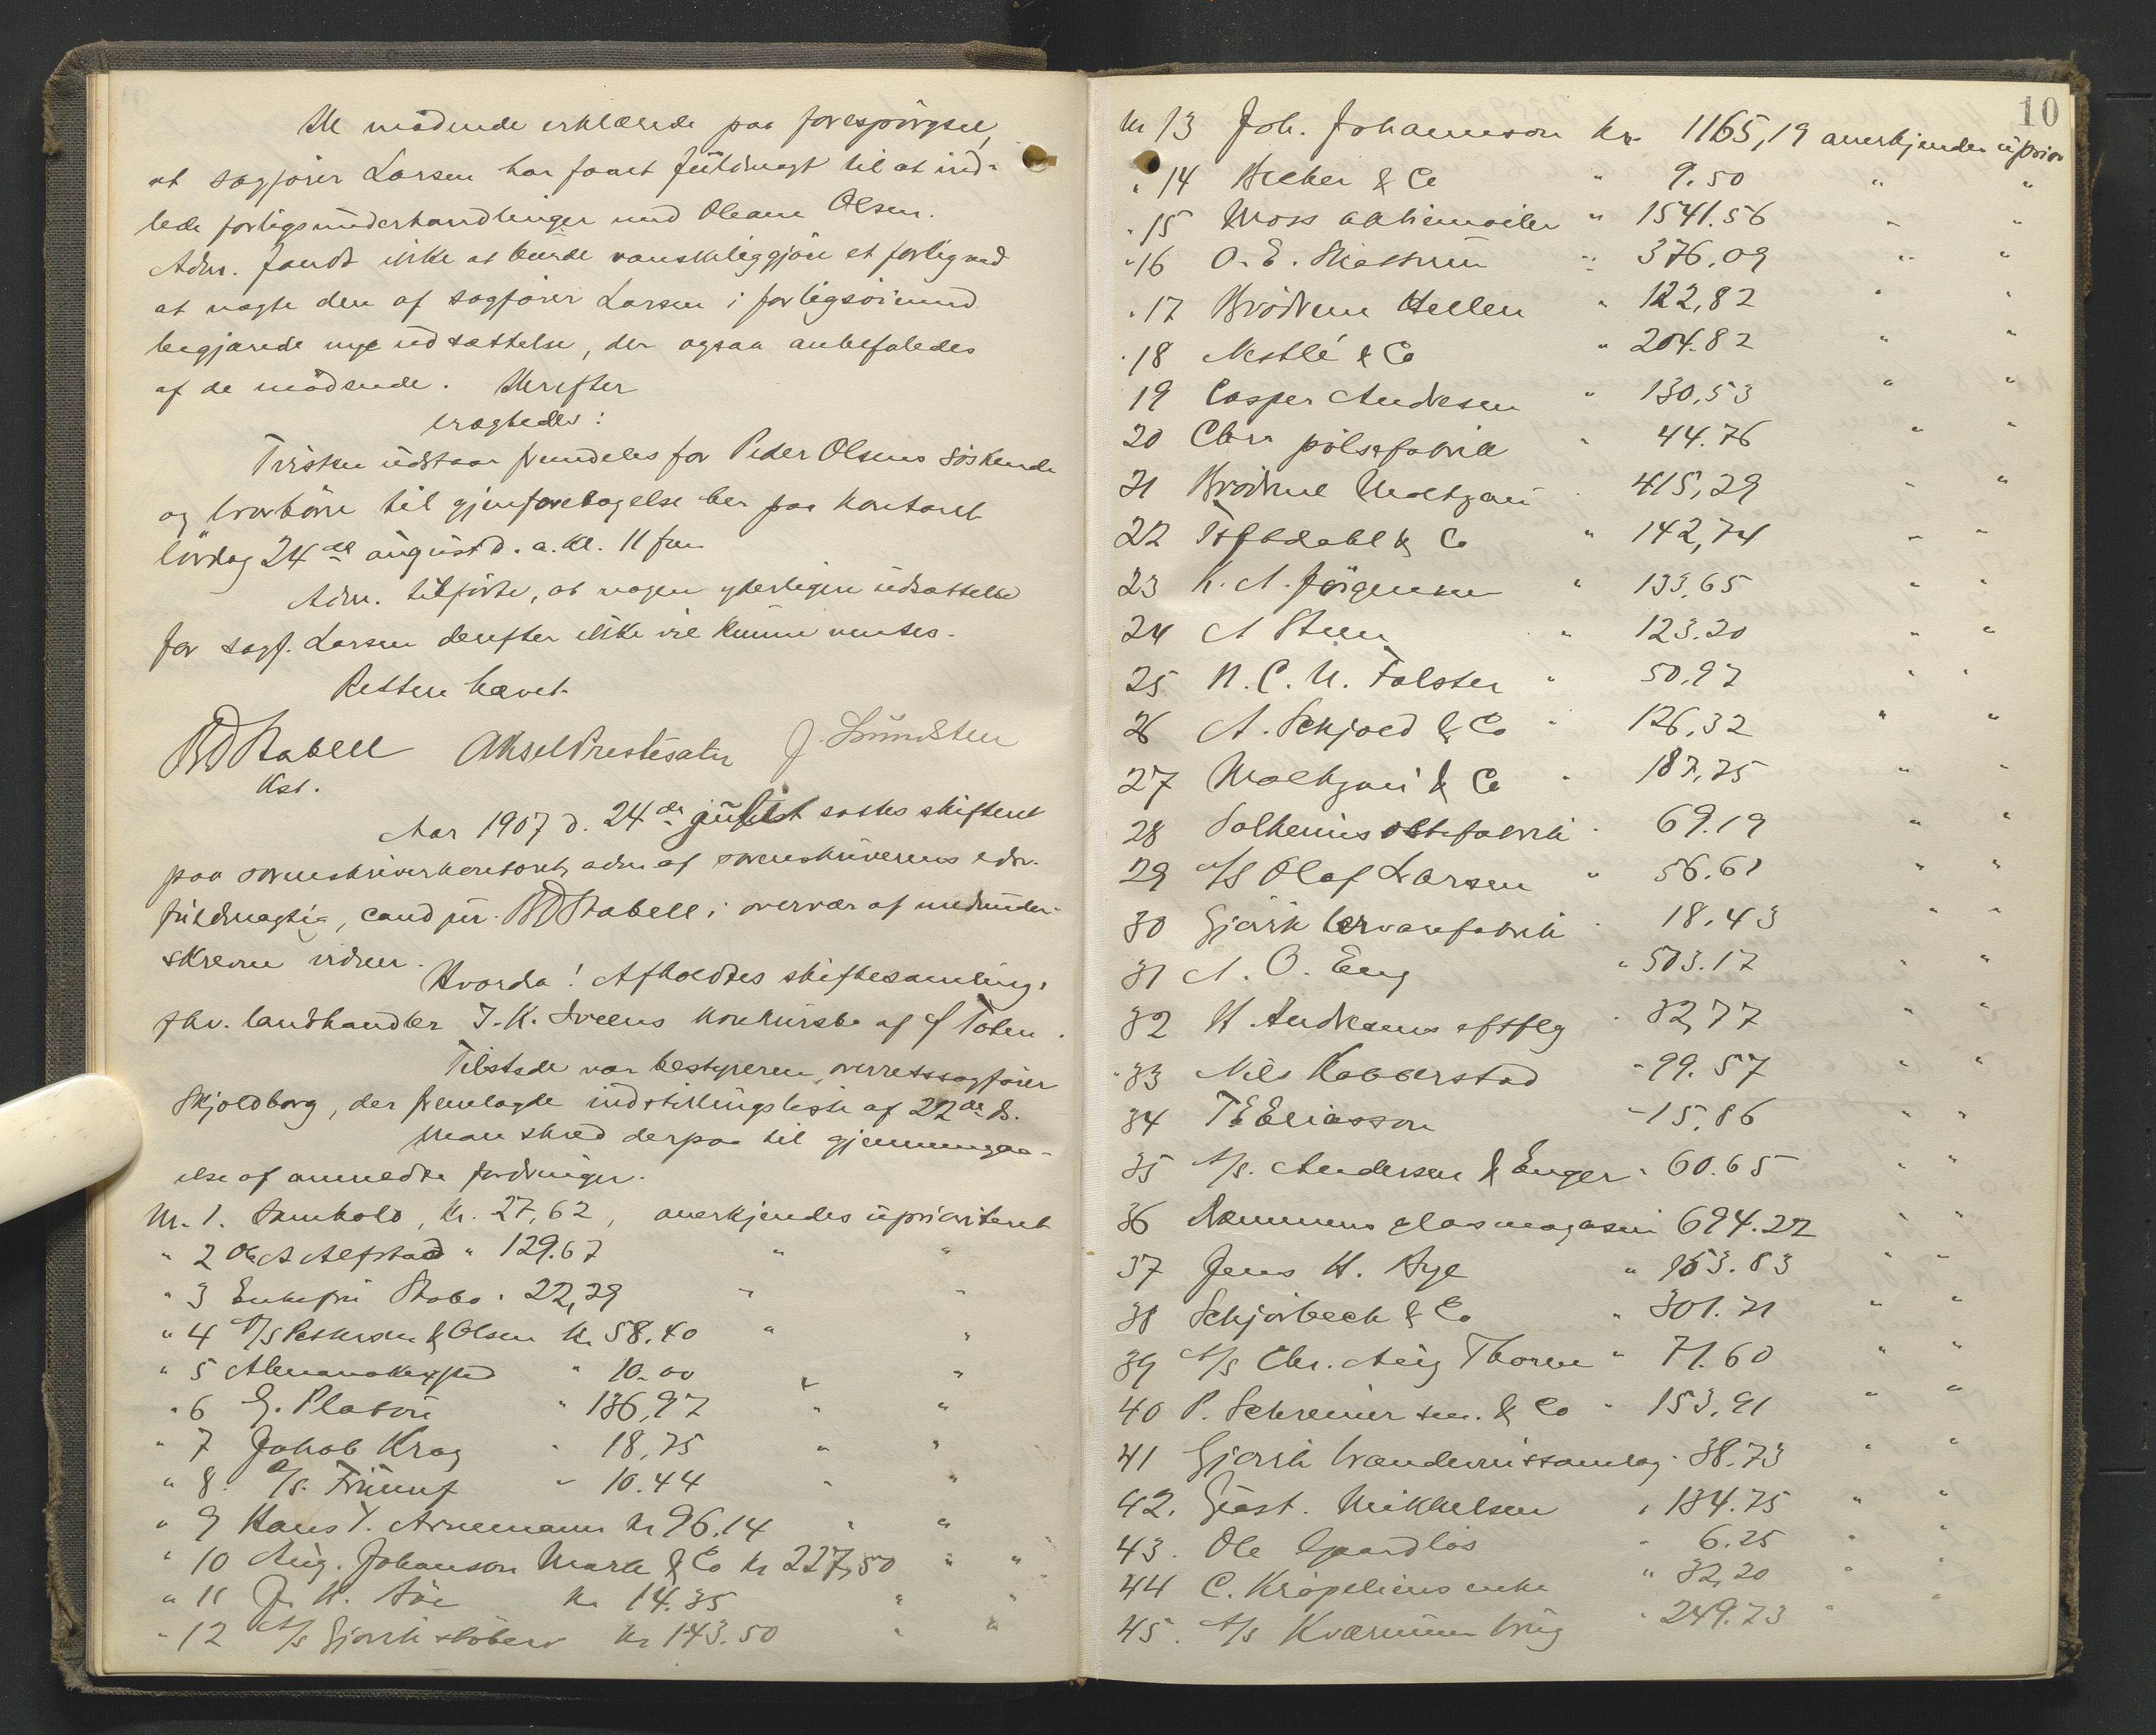 De mødende erklærede paa forespørgsel,
at sagfører Larsen har faaet fuldmagt til at ind-
lede forligsunderhandlinger med Oleane Olsen.
Adm. fandt ikke at burde vanskeliggjøre et forlig ved
at nægte den af sagfører Larsen i forligsøiemed
begjærede nye udsættelse, der ogsaa anbefaledes
af de mødende. Herefter
eragtedes:
Tvisten udstaar fremdeles for Peder Olsens søskende
og brorbørn til gjenforetagelse her paa kontoret
lørdag 24de august d. a. kl. 11 fm.
Adm. tilførte, at nogen yderligere udsættelse
for sagf. Larsen derefter ikke vil kunne ventes.
Retten hævet.
BD Stabell Aksel Prestesater J. Lundsten
Kst.
Aar 1907 d. 24de juli sattes skifteret
paa sorenskriverkontoret, adm af sorenskriverens edsv.
fuldmægtig, cand jur. BD Stabell i overvær af medunder-
skrevne vidner.
Hvorda! Afholdtes skiftesamling i
fhv. landhandler J. K. Sveens konkursbo af Toten.
Tilstede var bestyreren, overretssagfører
Skjoldborg, der fremlagde indstillingsliste af 22de ds.
Man skred derpaa til gjennemgaa-
else af anmeldte fordringer.
Nr. 1. Samhold, kr. 27,62, anerkjendes uprioriteret
" 2 Ole A Alfstad " 129.67 " "
" 3 Enkefru Stabo " 22,29 " "
" 4 A/S Pettersen & Olsen kr 58.40 " "
" 5 Almanakkxpted " 10.00 " "
" 6 G. Platou " 136,97 " "
" 7 Jakob Krag " 18,75 " "
" 8. A/S. Triumf " 10.44 " "
" 9 Hans T. Arnemann kr 96.14 " "
" 10 Aug. Johanson Mark & Co kr 227,50 " "
" 11 kr 14.35 " "
" 12 A/S Gjøvik støberi kr 143.50 " "
10
Nr 13 Joh. Johannson kr. 1165,19 anerkjendes uprior
" 14 & Co " 9.50 " "
" 15 Moss aktiemøller " 1541.56 " "
" 16 O. E. " 376.09 " "
" 17 Brødrene Hellen " 122,82 " "
" 18 Nestlé & Co " 204.82 " "
19 Casper Andresen " 130,53 " "
20 Chra pølsefabrik " 44.76 " "
21 Brødrene Moltzau " 415,29 " "
22 & Co " 142,74 " "
23 K. A. Jørgensen " 133,65 " "
24 A Steen " 123.20 " "
25 N. C. U. Falster " 50,97 " "
26 A. Schjoed & Co " 126,32 " "
27 Moltzau & Co " 187,75 " "
28 Solheims oltefabrik " 69.19 " "
29 A/S Olaf Larsen " 56.61 " "
30 Gjøvik lervarefabrik " 18.43 " "
31 A. O. Eng " 503.17 " "
32 H Andresens eftflg " 32,77 " "
" 33 Nils Kobberstad " 99.57 " "
34 T. E. Eliasson " 15.86 " "
35 A/S. Andersen & Enger " 60.65 " "
36 glasmagasin 694.22 " "
37 Jens H. Aye " 153.83 " "
38 Schjørbeck & Co " 301.71 " "
39 A/S Chr. Aug Thorne " 71.60 " "
40 P. Schreiner sen. & Co " 153.91 " "
41 Gjøvik brændevinssamlag " 38.73 " "
42. Gust. Mikkelsen " 134.75 " "
43. Ole Gaardløs " 6.25 " "
44 C. Krøpeliens enke " 32,20 " "
45. A/S Kværnum brug " 249.73 " "